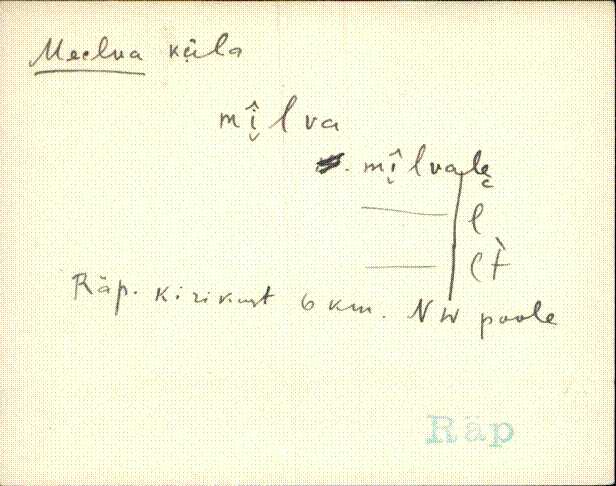 Meelva küla
mî̬lva
mî̬lvale̬
l
lt̀
Räp. kirikust 6 km. NW poole
Räp